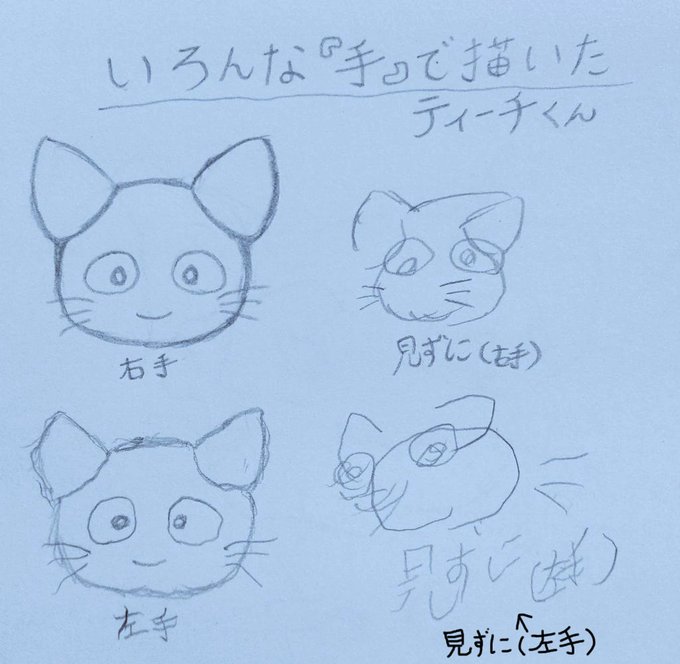 いろんな『手』で描いた
ティーチくん
右手
見ずに(右手)
左手
見ずに(左手)
見ずに(左手)